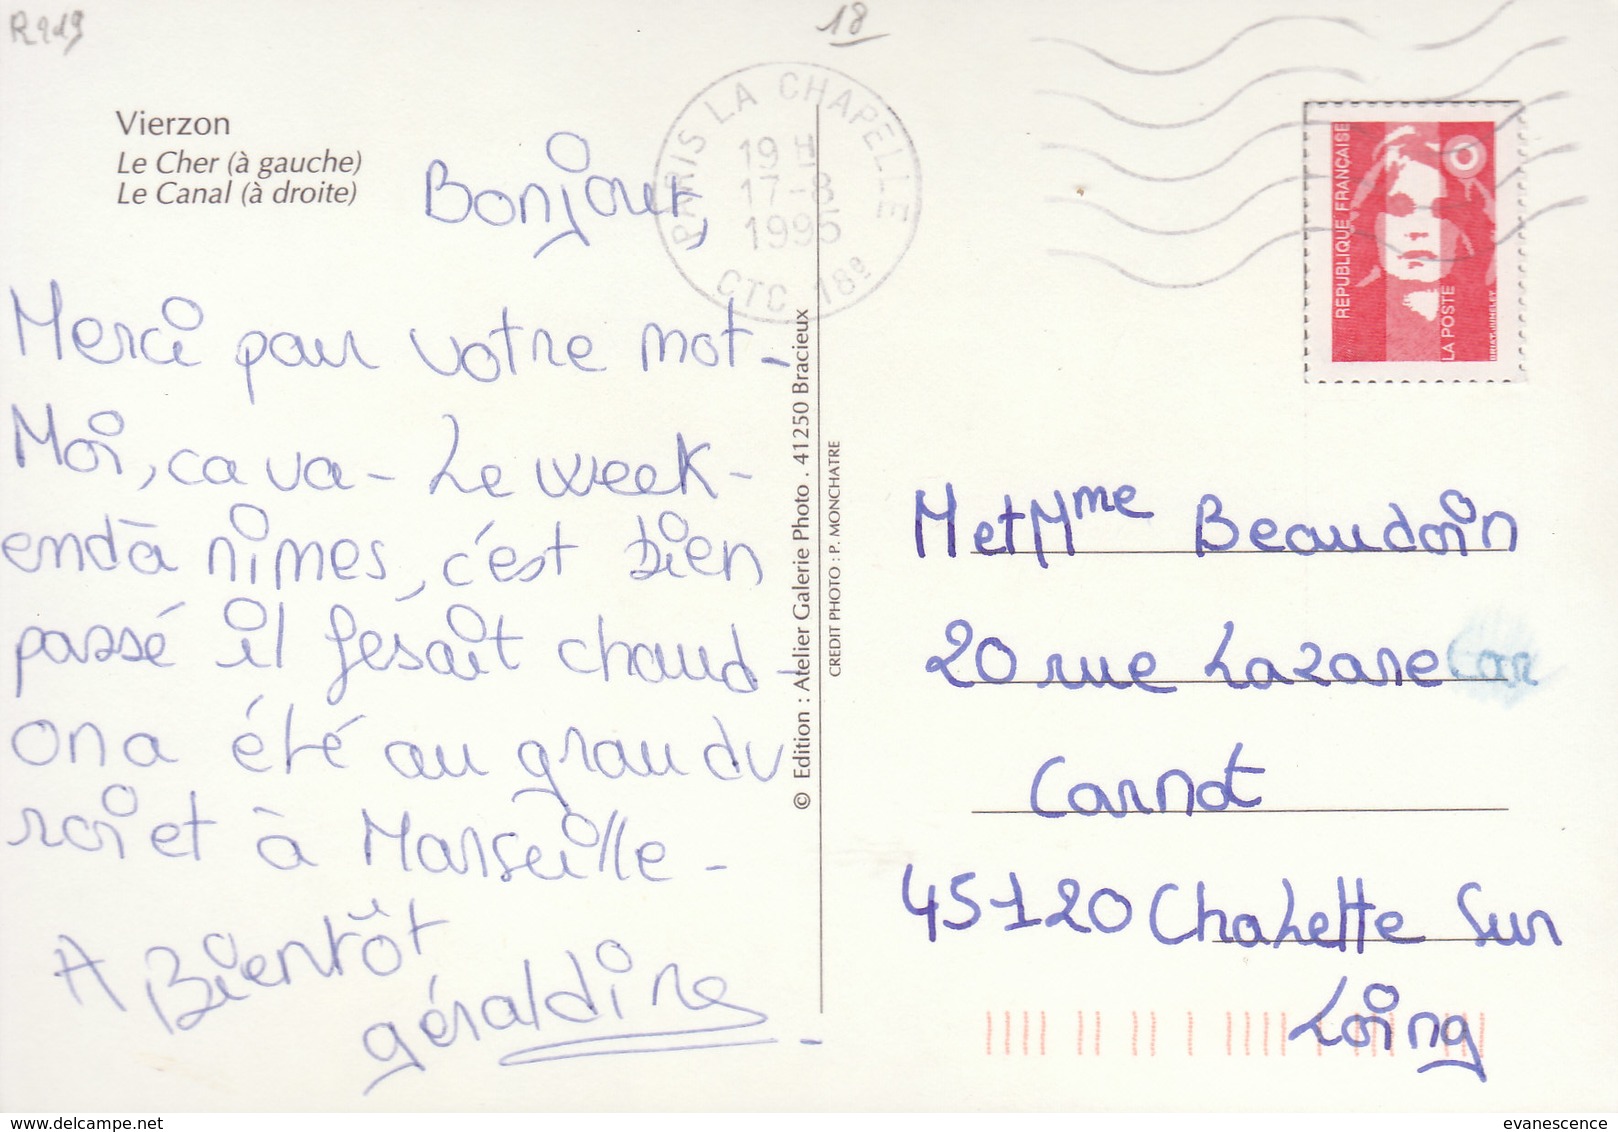 R219
18
Vierzon
Le Cher (à gauche)
Le Canal (à droite)
PARIS LA CHAPELLE
19 H
17-8
1995
CTC 18e
REPUBLIQUE FRANÇAISE
LA POSTE
BRIAT-JUMELET
Bonjour,
Merci pour votre mot-
Moi, ca va - Le week-
end à nimes, c'est bien
passé il fésait chaud -
on a été au grau du
roi et à Marseille -
A Bientôt
géraldine -
© Edition : Atelier Galerie Photo . 41250 Bracieux
CREDIT PHOTO : P. MONCHATRE
M et Mme Beaudoin
20 rue Lazare Car
Carnot
45120 Chalette Sur
Loing
evanescence